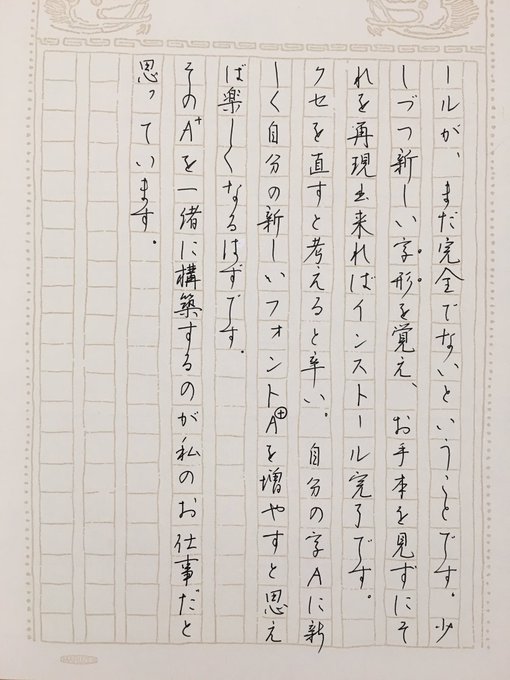 ールが、まだ完全でないということです。少
しづつ新しい字形を覚え、お手本を見ずにそ
れを再現出来ればインストール完了です。
クセを直すと考えると辛い。自分の字Aに新
しく自分の新しいフォントA⊕を増やすと思え
ば楽しくなるはずです。
そのA⁺を一緒に構築するのが私のお仕事だと
思っています。